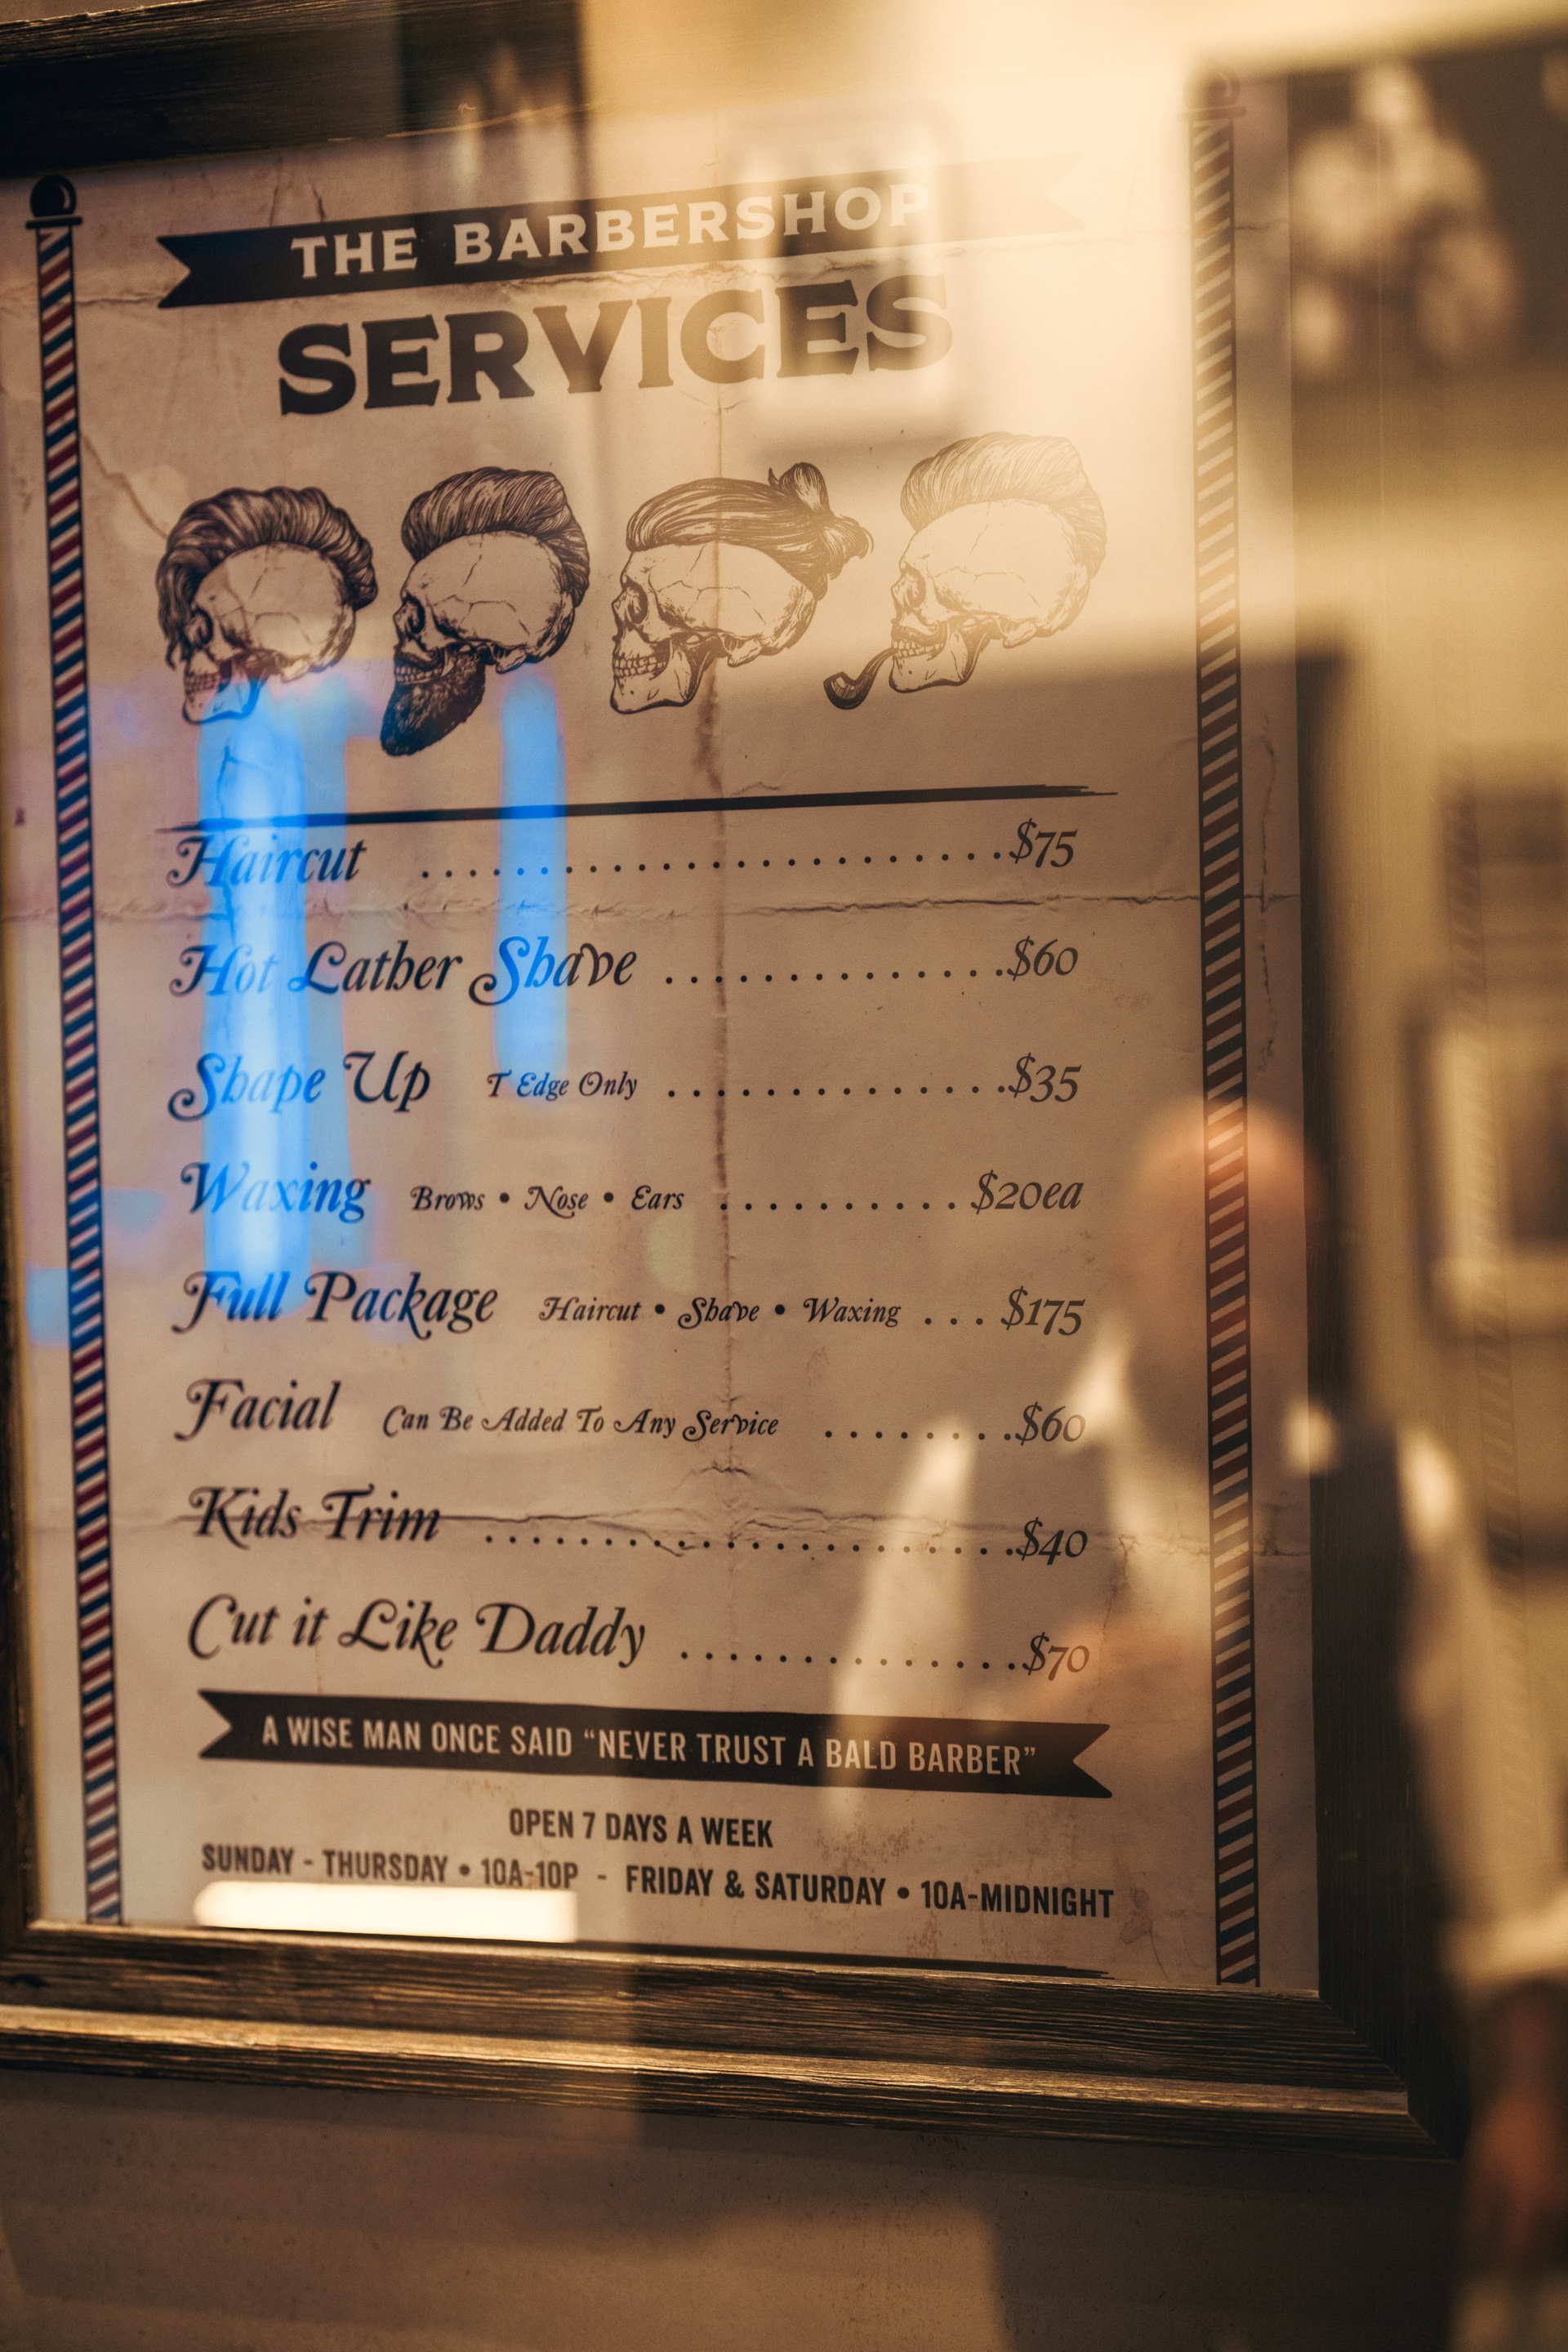 THE BARBERSHOP
SERVICES
Haircut ........................$75
Hot Lather Shave ..............$60
Shape Up T Edge Only ..............$35
Waxing Brows • Nose • Ears ..........$20ea
Full Package Haircut • Shave • Waxing ...$175
Facial Can Be Added To Any Service ........$60
Kids Trim ......................$40
Cut it Like Daddy ..............$70
A WISE MAN ONCE SAID “NEVER TRUST A BALD BARBER”
OPEN 7 DAYS A WEEK
SUNDAY - THURSDAY • 10A-10P - FRIDAY & SATURDAY • 10A-MIDNIGHT